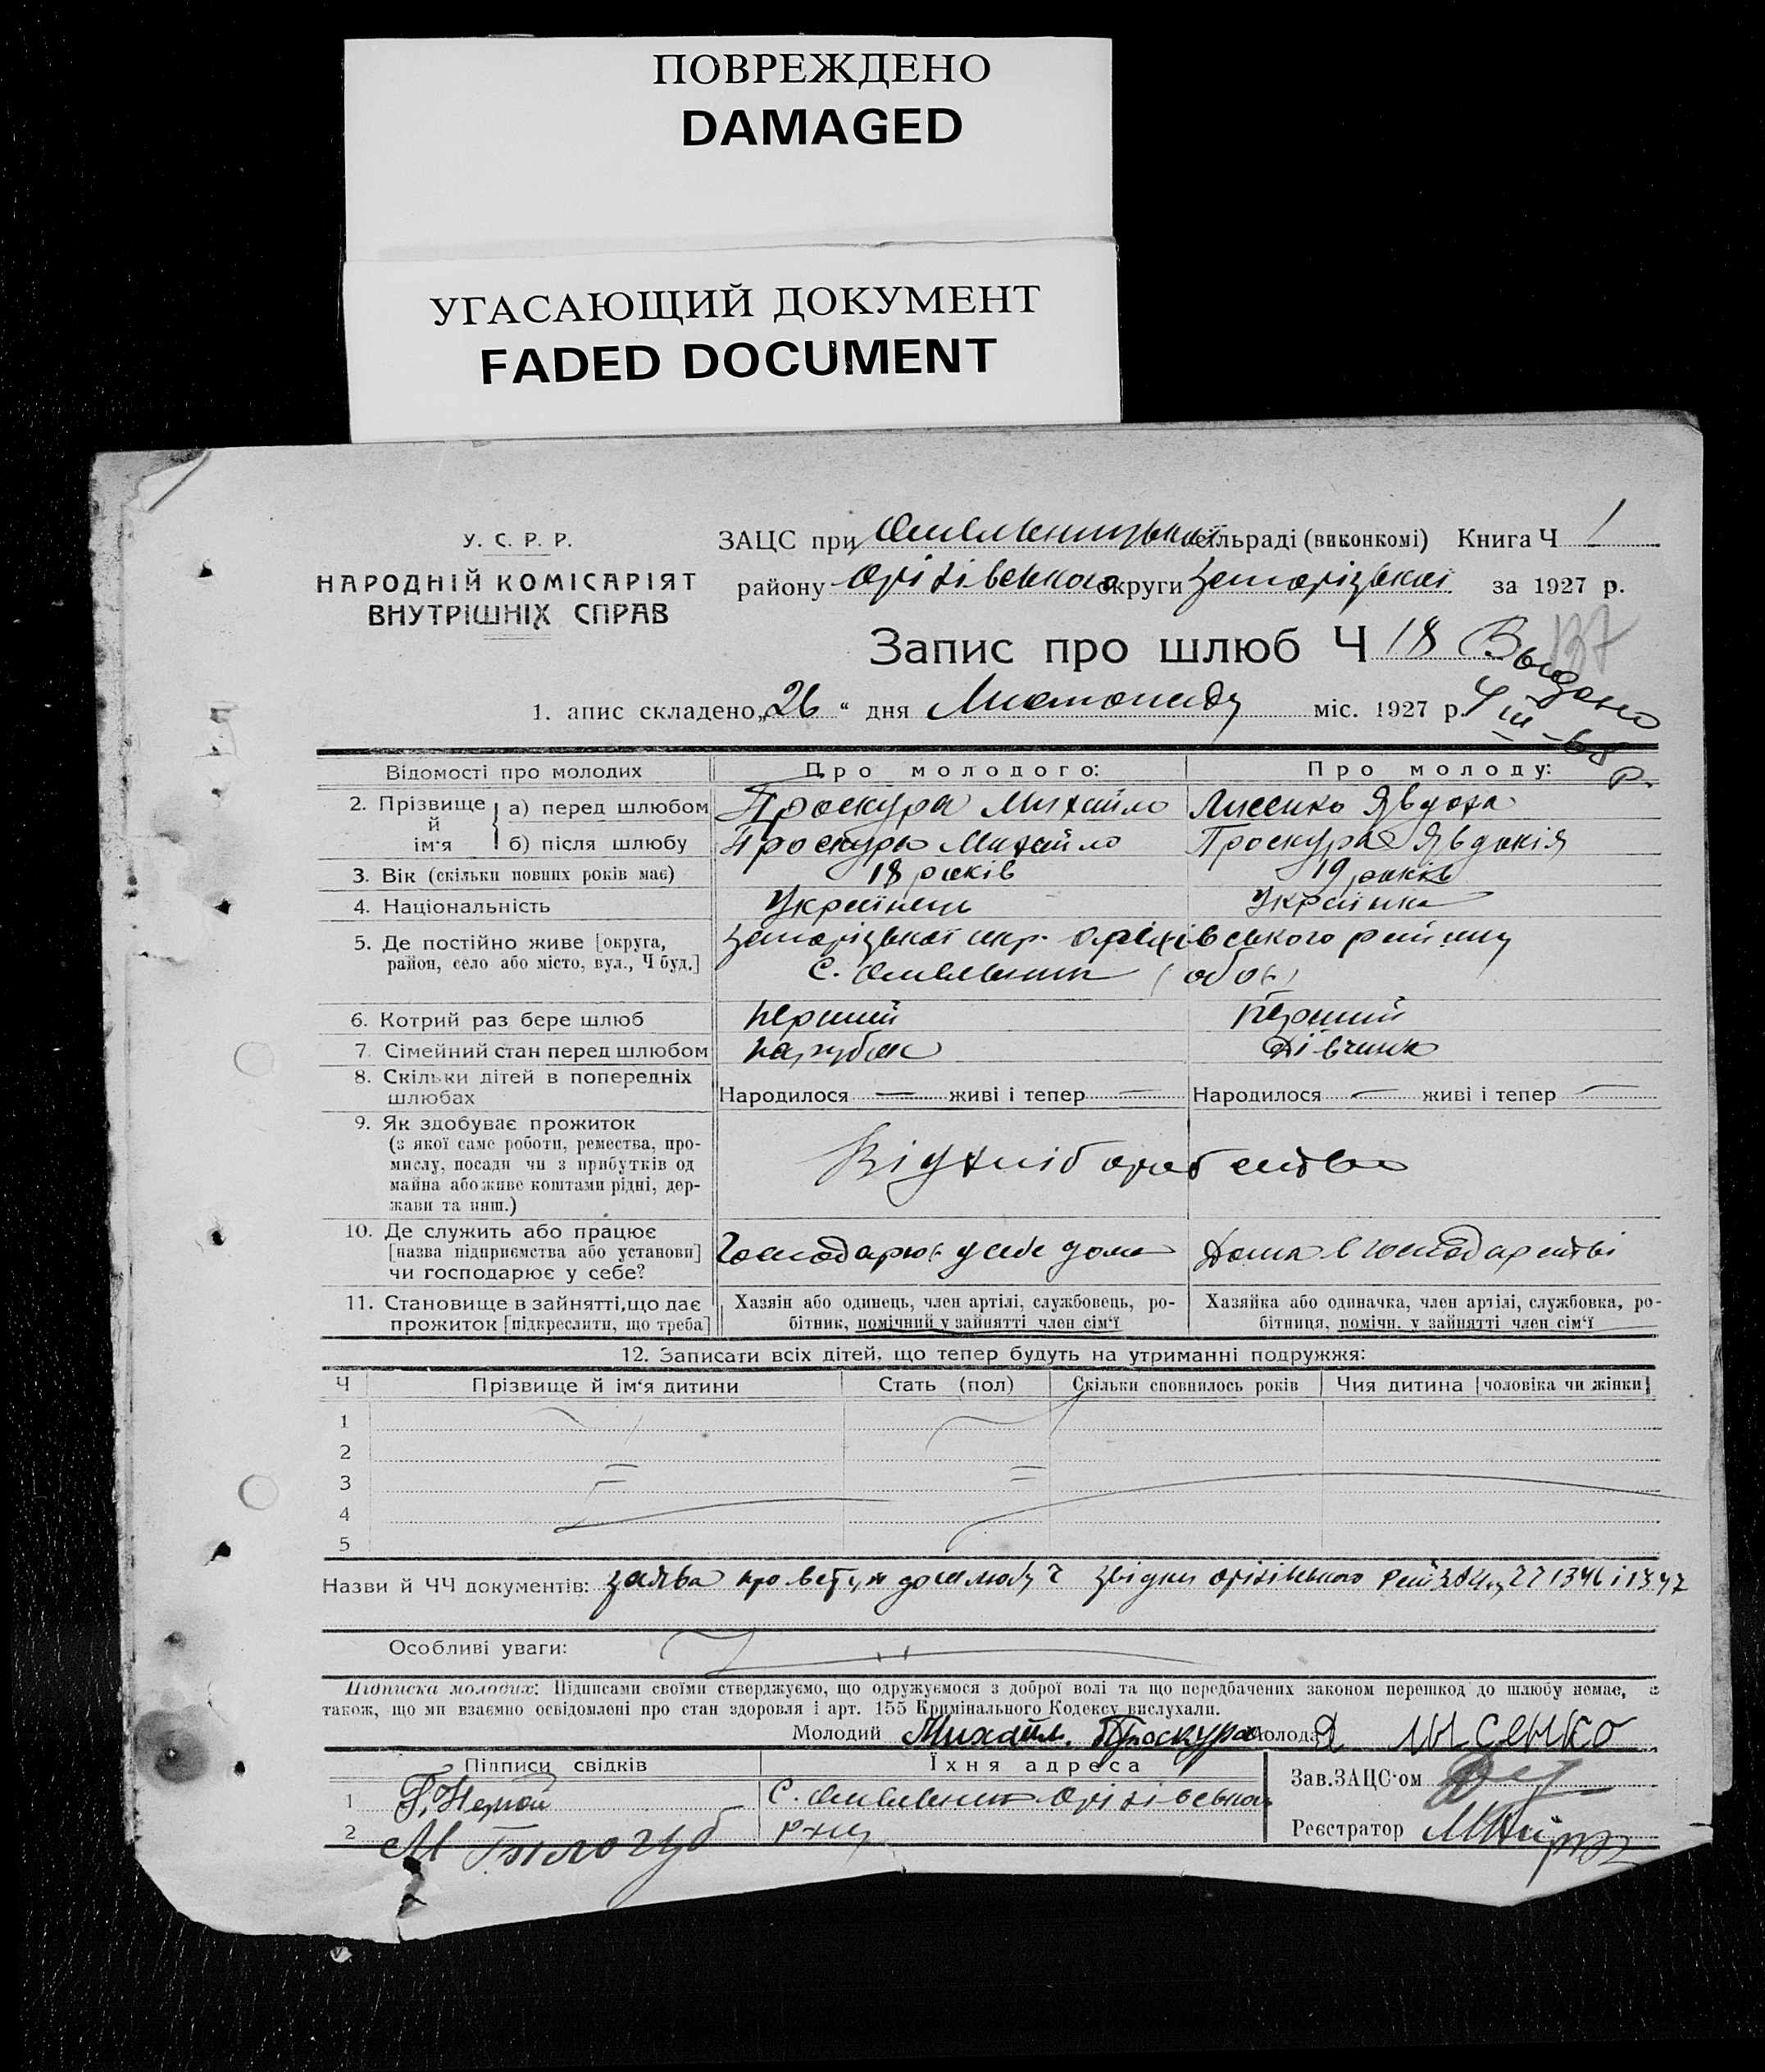 ПОВРЕЖДЕНО
DAMAGED
УГАСАЮЩИЙ ДОКУМЕНТ
FADED DOCUMENT
У. С. Р. Р.
НАРОДНІЙ КОМІСАРІЯТ
ВНУТРІШНІХ СПРАВ
ЗАЦС при Омельницькій сільраді (виконкомі) Книга Ч 1
району Оріхівського округи Запорізької за 1927 р.
Запис про шлюб Ч 18 137
Выдано
4 III - 68
р.
1. апис складено „26“ дня Листопаду міс. 1927 р.
Відомості про молодих Про молодого: Про молоду:
2. Прізвище й ім'я а) перед шлюбом Проскура Михайло Лисенко Явдоха
б) після шлюбу Проскура Михайло Проскура Явдокія
3. Вік (скільки повних років має) 18 років 19 років
4. Національність Українець Українка
5. Де постійно живе [округа, район, село або місто, вул., Ч буд.] Запорізької окр. Оріхівського району
С. Омельник (обоє)
6. Котрий раз бере шлюб перший перший
7. Сімейний стан перед шлюбом парубок дівчина
8. Скільки дітей в попередніх шлюбах Народилося — живі і тепер — Народилося — живі і тепер —
9. Як здобуває прожиток
(з якої саме роботи, ремества, про-
мислу, посади чи з прибутків од
майна або живе коштами рідні, дер-
жави та инш.)
Від хліборобства
10. Де служить або працює
[назва підприємства або установи]
чи господарює у себе?
Господарює у себе дома Дома в господарстві
11. Становище в зайнятті, що дає
прожиток [підкреслити, що треба]
Хазяін або одинець, член артілі, службовець, ро-
бітник, помічний у зайнятті член сім'ї
Хазяйка або одиначка, член артілі, службовка, ро-
бітниця, помічн. у зайнятті член сім'ї
12. Записати всіх дітей, що тепер будуть на утриманні подружжя:
Ч Прізвище й ім'я дитини Стать (пол) Скільки сповнилось років Чия дитина [чоловіка чи жінки]
1
2
3
4
5
Назви й ЧЧ документів: заява про вступ до шлюбу звідки Оріхівського 1346 і 1347
Особливі уваги:
Підписка молодих: Підписами своїми стверджуємо, що одружуємося з доброї волі та що передбачених законом перешкод до шлюбу немає, а
також, що ми взаємно освідомлені про стан здоровля і арт. 155 Кримінального Кодексу вислухали.
Молодий Михайл. Проскура Молода Я Лисенко
Підписи свідків Їхня адреса
Зав. ЗАЦС'ом
1 С. Омельник Оріхівського
2 М Білогуб р-ну
Реєстратор